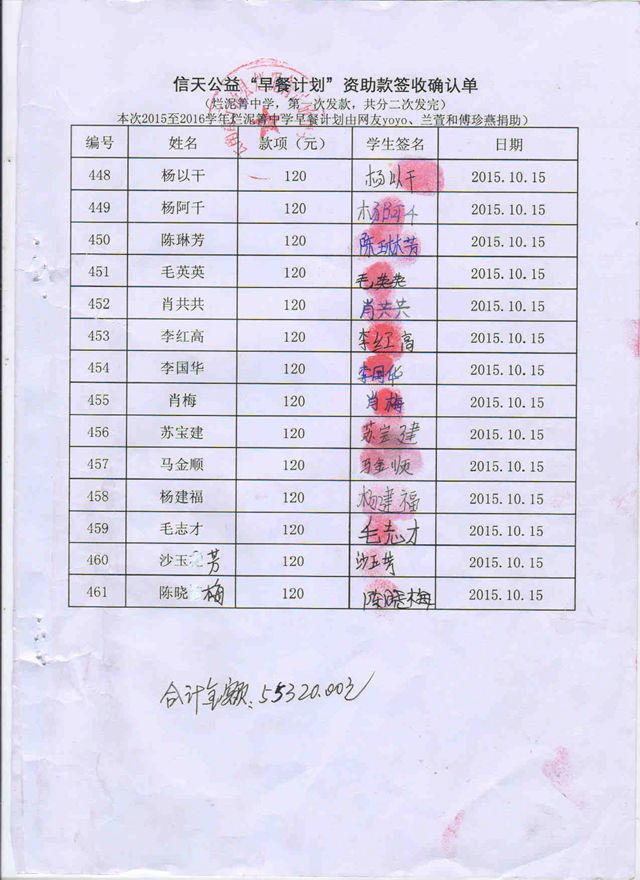 信天公益“早餐计划”资助款签收确认单
(烂泥箐中学，第一次发款，共分二次发完)
本次2015至2016学年烂泥箐中学早餐计划由网友yoyo、兰萱和傅珍燕捐助)
编号 姓名 款项（元） 学生签名 日期
448 杨以干 120 杨以干 2015.10.15
449 杨阿千 120 杨阿千 2015.10.15
450 陈琳芳 120 陈琳芳 2015.10.15
451 毛英英 120 毛英英 2015.10.15
452 肖共共 120 肖共共 2015.10.15
453 李红高 120 李红高 2015.10.15
454 李国华 120 李国华 2015.10.15
455 肖梅 120 肖梅 2015.10.15
456 苏宝建 120 苏宝建 2015.10.15
457 马金顺 120 马金顺 2015.10.15
458 杨建福 120 杨建福 2015.10.15
459 毛志才 120 毛志才 2015.10.15
460 沙玉芳 120 沙玉芳 2015.10.15
461 陈晓梅 120 陈晓梅 2015.10.15
合计金额：55320.00元